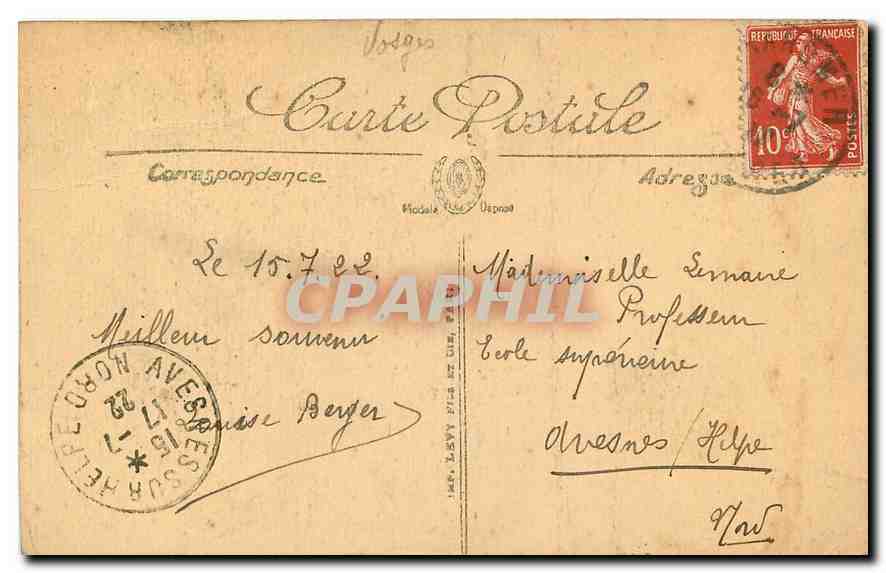 Vosges
REPUBLIQUE FRANÇAISE
10c
POSTES
Carte Postale
Correspondance
Adresse
Modele Deposé
CPAPHIL
Le 15.7.22.
Meilleur souvenir
Louise Berger
Mademoiselle Lemaire
Professeur
Ecole supérieure
Avesnes/Helpe
Nord
IMP. LEVY FILS ET CIE, PARIS
AVESNES SUR HELPE NORD
15 -7
22